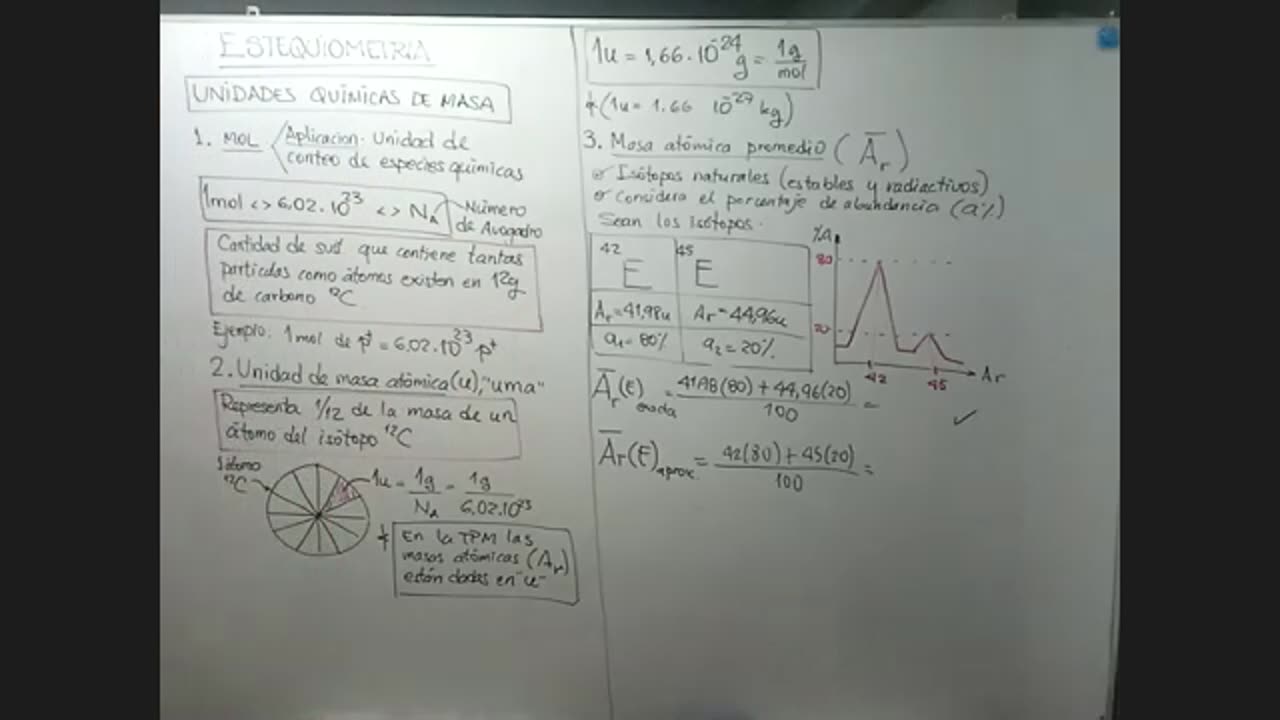 ESTEQUIOMETRIA
UNIDADES QUÍMICAS DE MASA
1. MOL Aplicacion. Unidad de
conteo de especies químicas
1mol <> 6,02.10²³ <> N_A Número
de Avogadro
Cantidad de sust que contiene tantas
partículas como átomos existen en 12g
de carbono ¹²C
Ejemplo: 1mol de p⁺ = 6,02.10²³ p⁺
2. Unidad de masa atómica (u), "uma"
Representa 1/12 de la masa de un
átomo del isótopo ¹²C
1 átomo
¹²C
1u = 1g/N_A = 1g/6,02.10²³
En la TPM las
masas atómicas (Ar)
están dadas en "u"
1u = 1,66.10⁻²⁴ g = 1g/mol
(1u = 1.66 10⁻²⁷ kg)
3. Masa atómica promedio (A̅r)
Isótopos naturales (estables y radiactivos)
Considera el porcentaje de abundancia (a%)
Sean los isótopos.
⁴²E ⁴⁵E
Ar = 41,98u Ar = 44,96u
a₁ = 80% a₂ = 20%
%a
80
20
42 45 Ar
A̅r(E) exacta = 41,98(80) + 44,96(20) / 100 =
A̅r(E) aprox. = 42(80) + 45(20) / 100 =